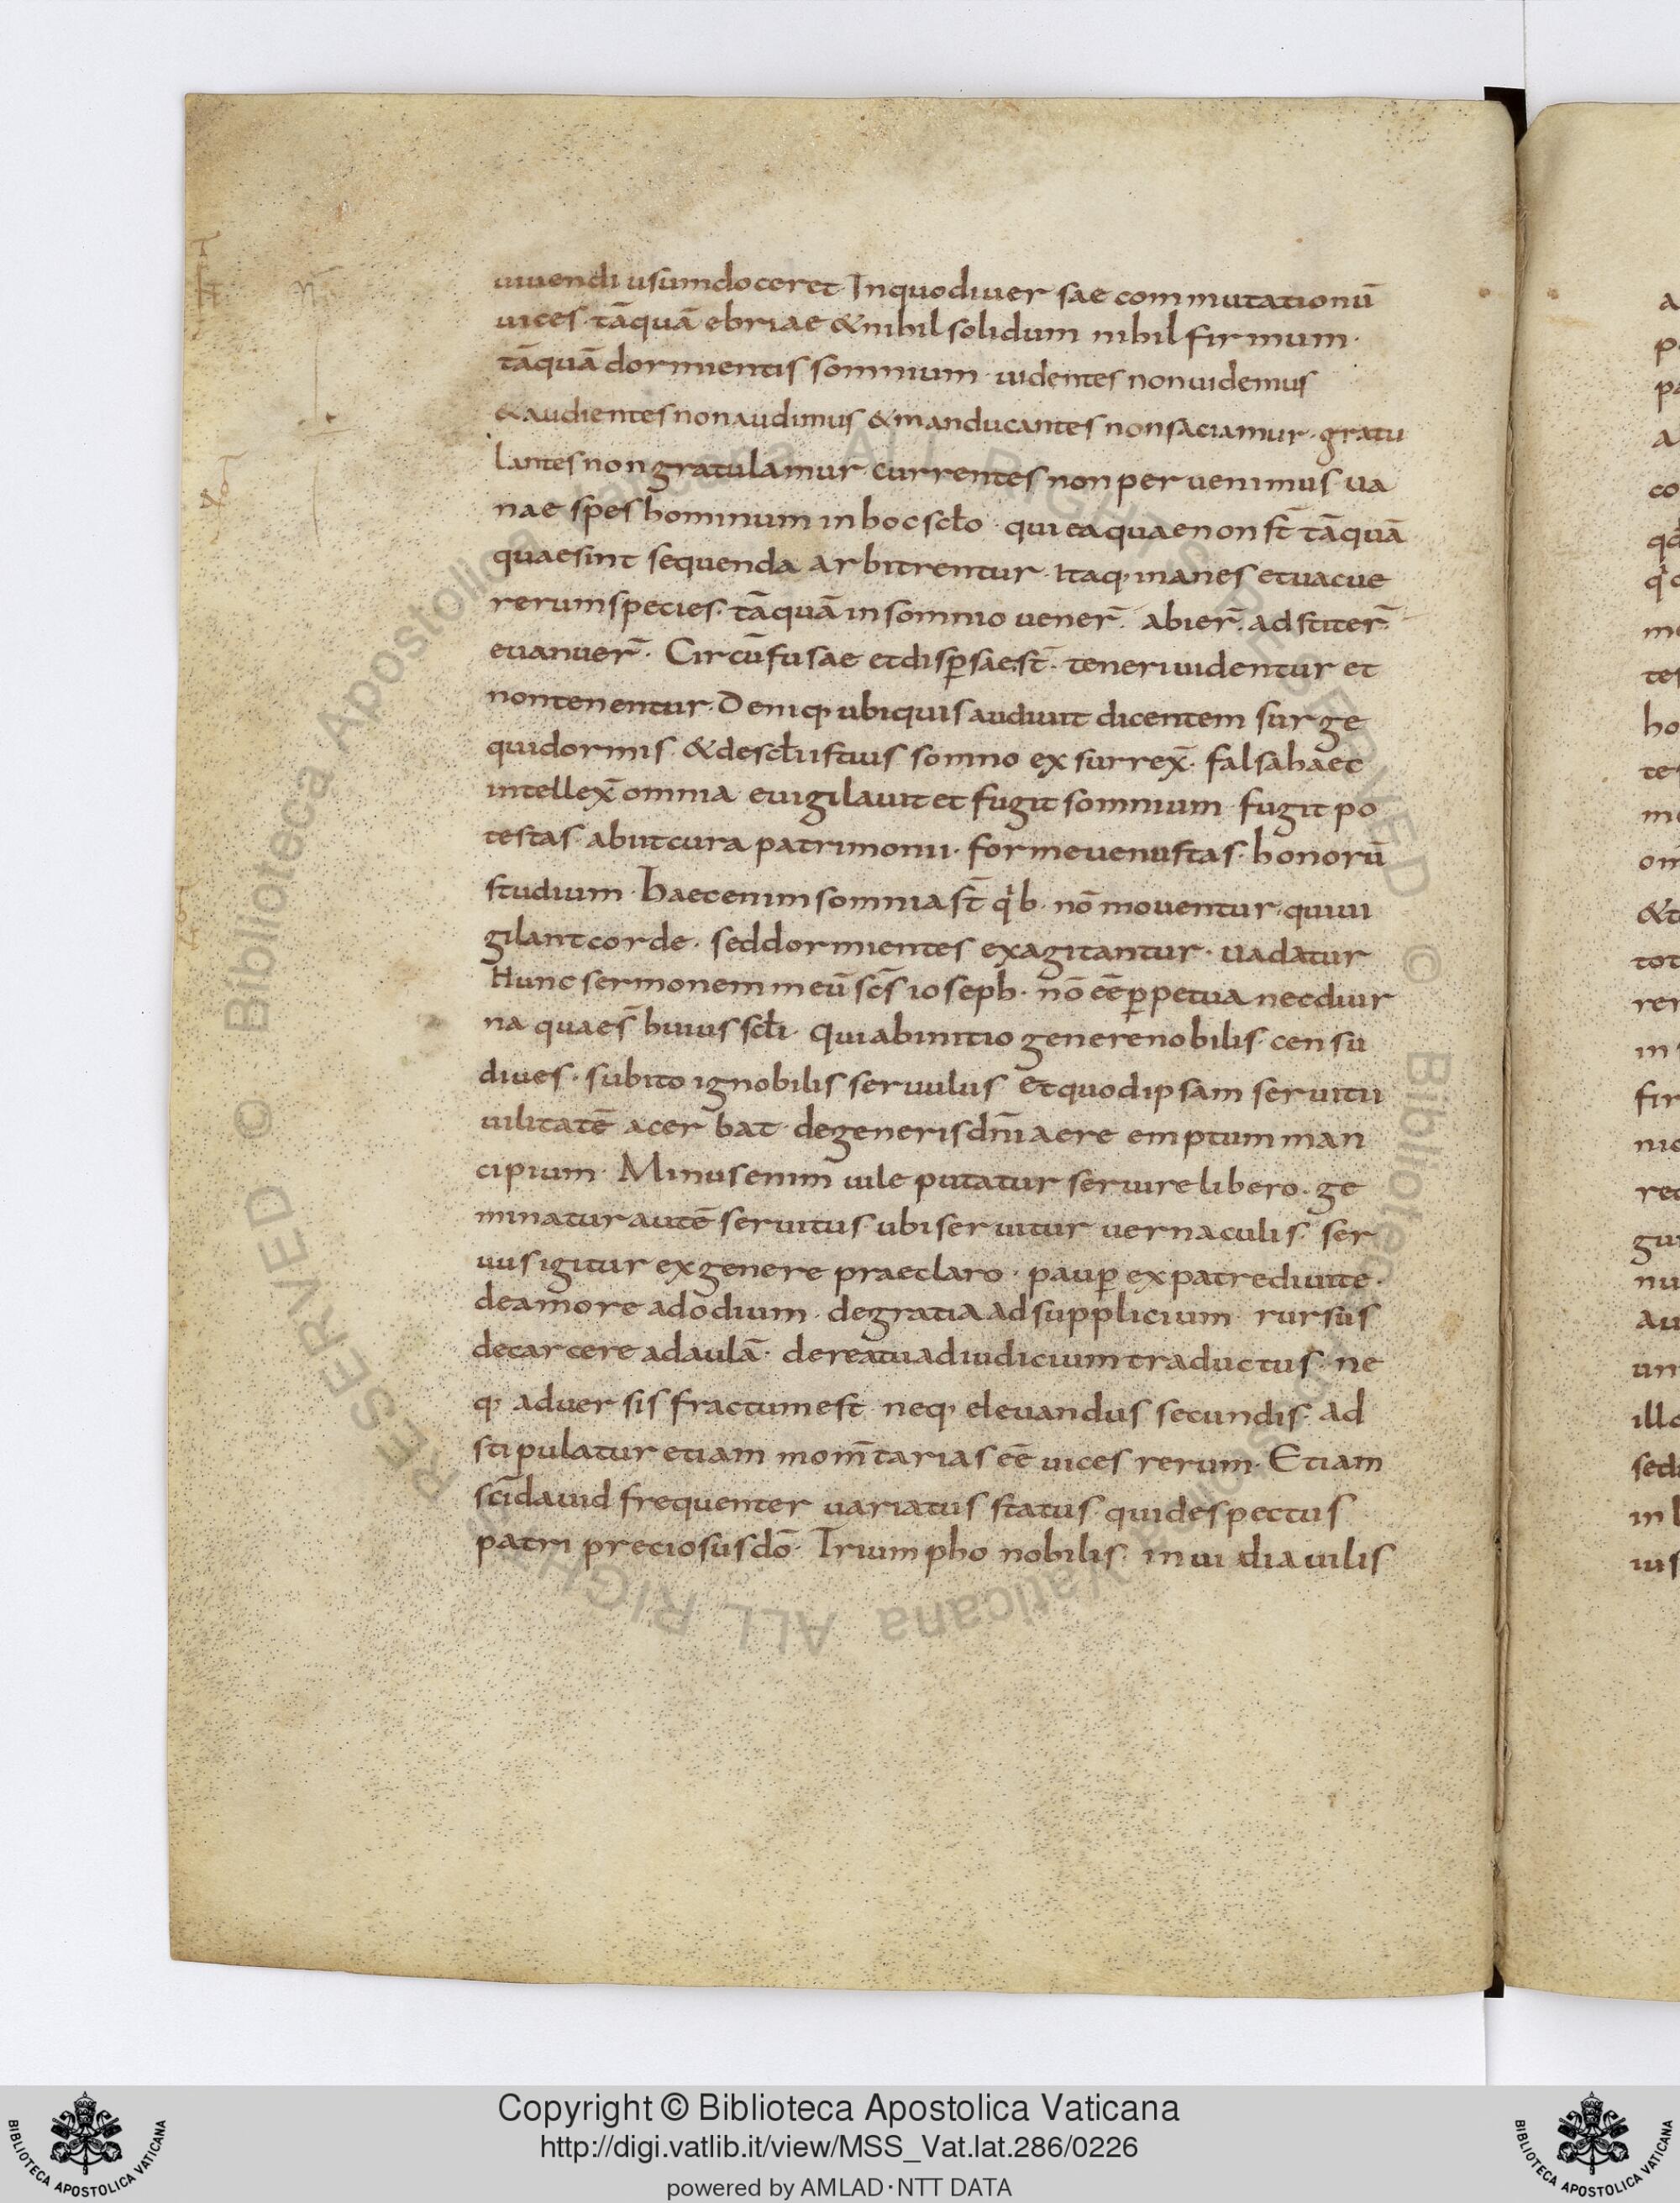 uiuendi usumdoceret Inquodiuer sae commutationū
uices· tāquā ebriae &nihil solidum nihil firmum·
tāquā dormientis somnium· uidentes nonuidemus
&audientes nonaudimus &manducantes nonsaciamur· gratu
lantes non gratulamur currentes non per uenimus ua
nae spes hominum in hoc scło· qui ea quae non st̄ tāquā
quaesint sequenda arbitrentur· Itaq; inanes etuacue
rerum species· tāquā in somnio uener̄· abier̄· adstiter̄·
euanuer̄· Circūfusae et disꝑsae st̄· teneri uidentur et
nontenentur· Deniq; ubi quis audiuit dicentem surge
quidormis· &descłi istius somno ex surrex̄· falsa haec
intellex̄ omnia euigilauit et fugit somnium· fugit po
testas· abiit cura patrimonii· forme uenustas· honorū
studium· Haec enim somnia st̄ qⁱb· nō mouentur· quiui
gilant corde· sed dormientes exagitantur· uadatur
Hunc sermonem meū scs̄ ioseph· nō eē ꝑpetua necdiur
na quaes̄ huius scłi· Qui abinitio generenobilis· censu
diues· subito ignobilis seruulus Et quod ipsam seruitii
uilitatē acerbat· degeneris dn̄i aere emptum man
cipium· Minus enim uile putatur seruire libero· ge
minatur autē seruitus· ubi seruitur uernaculis· ser
uus igitur ex genere praeclaro· pauꝑ expatrediuite·
deamore adodium· degratia adsupplicium· rursus
decarcere adaulā· dereatu adiudicium traductus· ne
q; aduersis fractum est neq; eleuandus secundis· ad
stipulatur etiam mom̄tarias eē uices rerum· Etiam
sc̄i dauid frequenter uariatus status· qui despectus
patri preciosus dō· Triumpho nobilis· inuidia uilis
Copyright © Biblioteca Apostolica Vaticana
http://digi.vatlib.it/view/MSS_Vat.lat.286/0226
powered by AMLAD·NTT DATA
BIBLIOTECA APOSTOLICA VATICANA
BIBLIOTECA APOSTOLICA VATICANA
© Biblioteca Apostolica Vaticana ALL RIGHTS RESERVED © Biblioteca Apostolica Vaticana ALL RIGHTS RESERVED